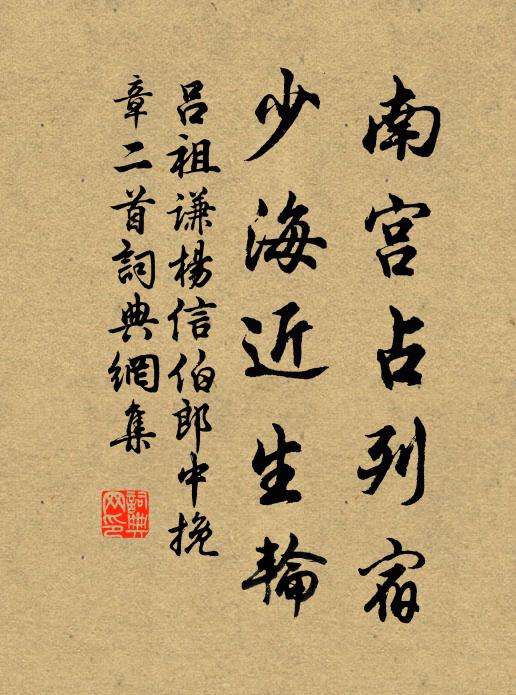 南宫占列宿
少海近生輪
吕祖謙楊信伯郎中挽
章二首詞典網集
詞典網印